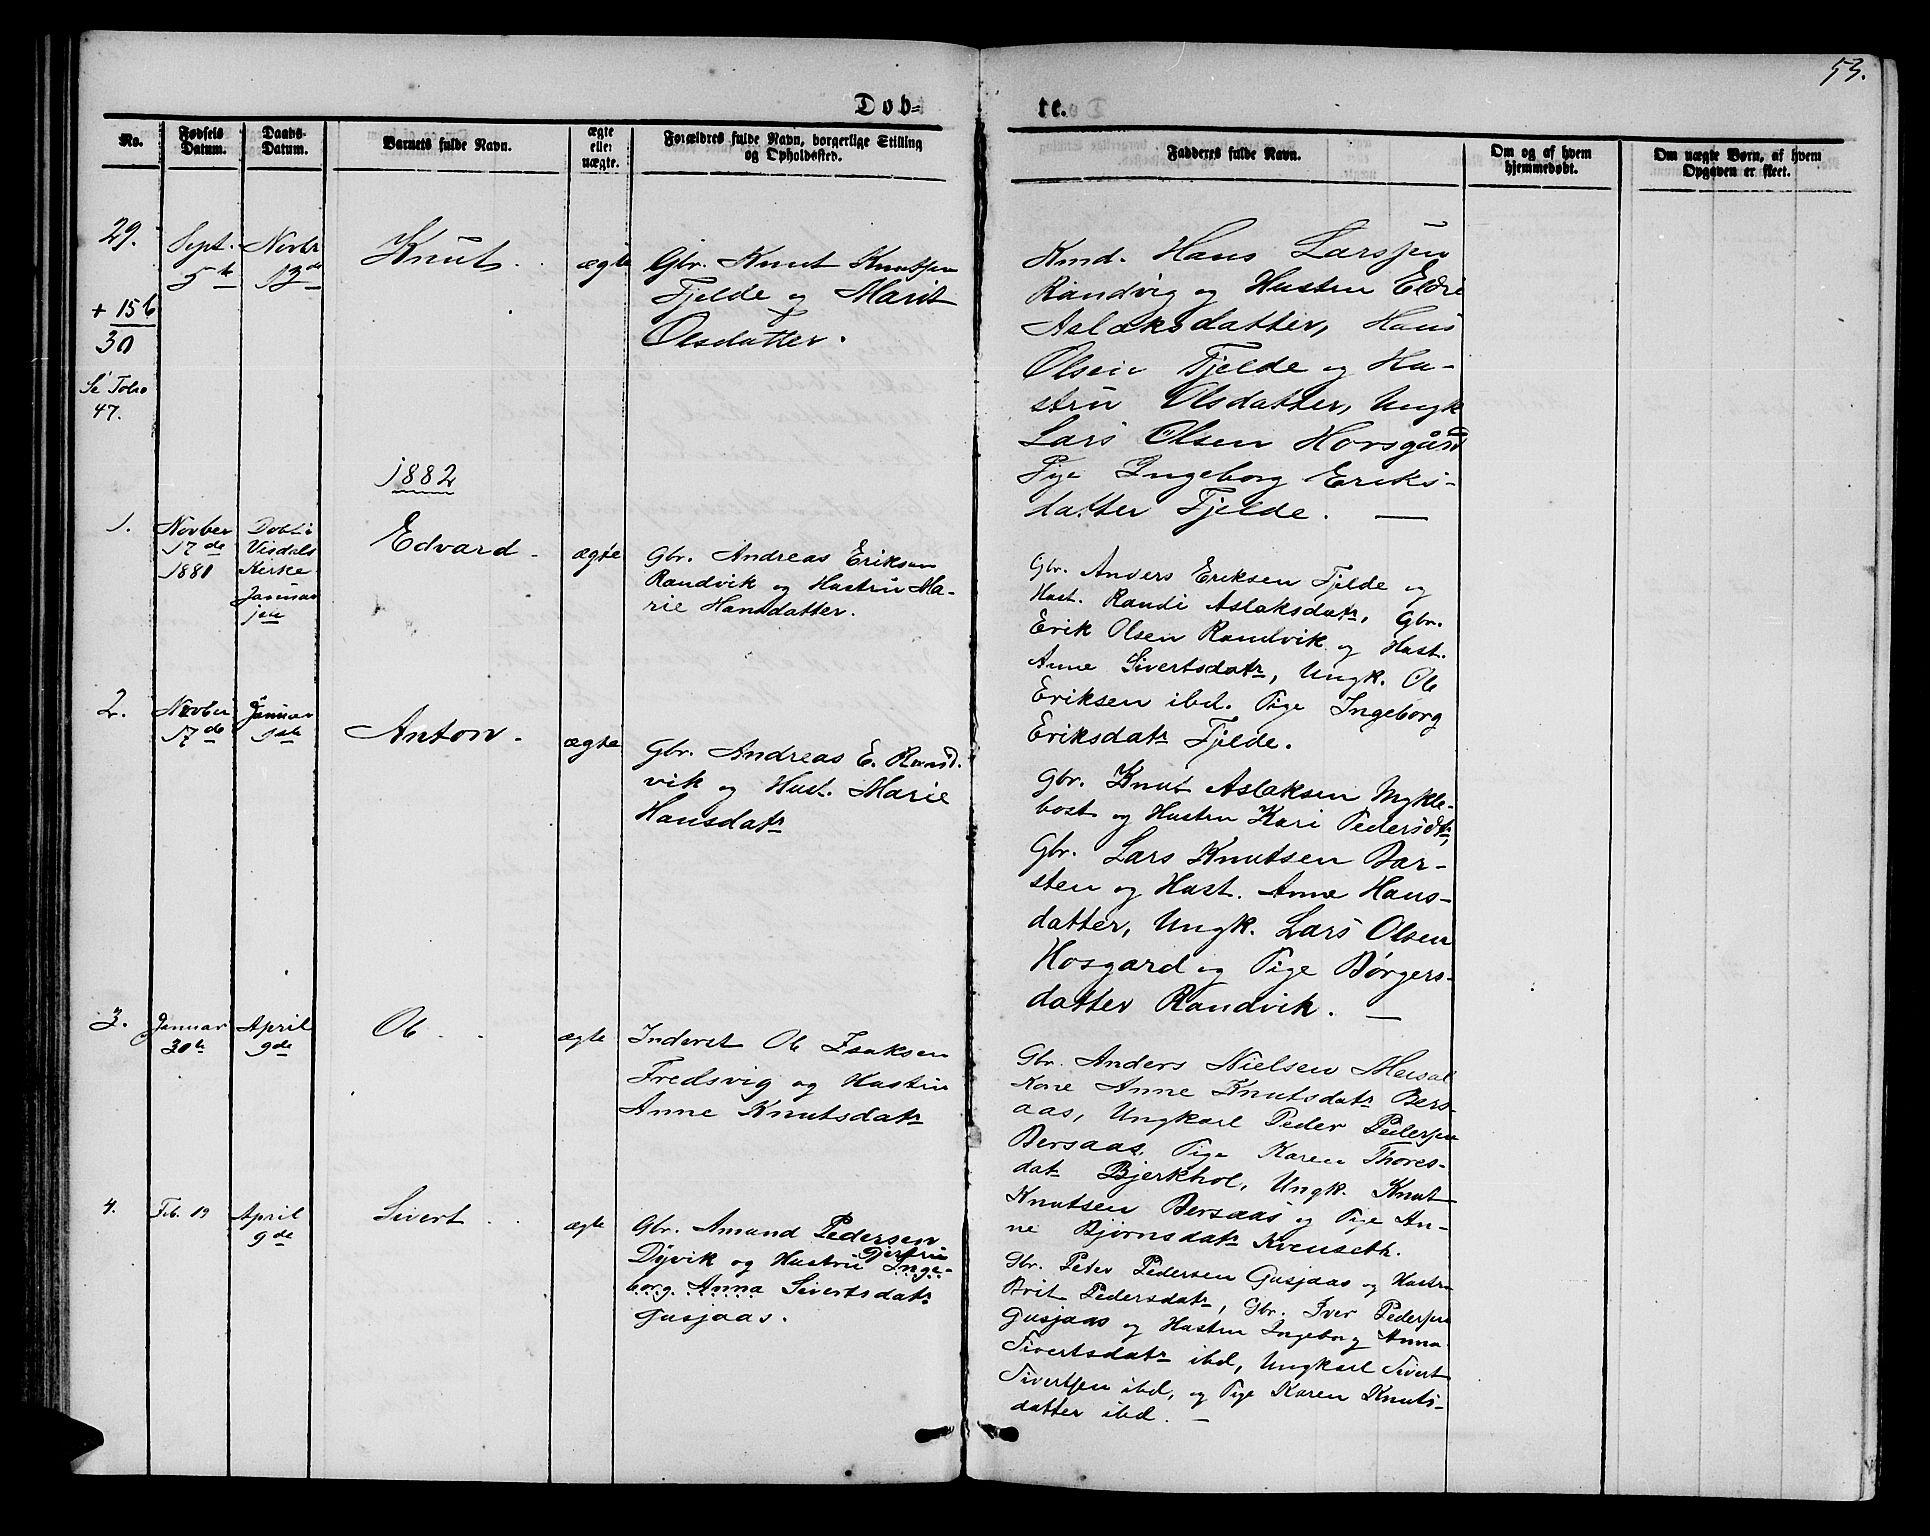 53.
Døb=
te.
No.
Fødsels
Datum.
Daabs-
Datum.
Barnets fulde Navn.
ægte
eller
uægte.
Forældres fulde Navn, borgerlige Stilling
og Opholdssted.
Fadderes fulde Navn.
Om og af hvem
hjemmedøbt.
Om uægte Børn, af hvem
Opgaven er skeet.
29.
+ 15 b
30
Se Folio
47.
Sept.
5te
Novbr
13de
Knut.
ægte
Gbr. Knut Knutsen
Fjelde og Marit
Olsdatter.
Kmd. Hans Larssen
Randvig og Hustru Eldri
Aslaksdatter, Hans
Olsen Fjelde og Hu-
stru Olsdatter, Ungk
Lars Olsen Horsgård
Pige Ingeborg Eriks-
datter Fjelde. —
1882
1.
Novber
17de
1881
Døbt i
Visdals
Kirke
Januar
1ste
Edvard.
ægte
Gbr. Andreas Eriksen
Randvik og Hustru Ma-
rie Hansdatter.
Gbr. Anders Eriksen Fjelde og
Hust. Randi Aslaksdatr, Gbr.
Erik Olsen Randvik og Hust.
Anne Sivertsdatr, Ungk. Ole
Eriksen ibd. Pige Ingeborg
Eriksdatr Fjelde.
2.
Novber
17de
Januar
1ste
Anton.
ægte
Gbr. Andreas E. Rand-
vik og Hust. Marie
Hansdatr
Gbr. Knut Aslaksen Mykle-
bost og Hustru Kari Pedersdtr,
Gbr. Lars Knutsen Bar-
sten og Hust. Anne Hans-
datter, Ungk. Lars Olsen
Hosgard og Pige Børgers-
datter Randvik. —
3.
Januar
30te
April
9de
Ole
ægte
Inderst Ole Isaksen
Fredsvig og Hustru
Anne Knutsdatr
Gbr. Anders Nielsen Meisal
Kone Anne Knutsdatr Bers-
aas, Ungkarl Peder Pedersen
Bersaas, Pige Karen Thores-
datr Bjerkhol, Ungk. Knut
Knutsen Bersaas og Pige An-
ne Bjørnsdatr Kvenseth.
4.
Feb. 19
April
9de
Sivert
ægte
Gbr. Amund Pedersen
Dyvik og Hustru Gjertru Inge-
borg Anna Sivertsdatr
Gusjaas.
Gbr. Peter Pedersen Gusjaas og Hustru
Brit Pedersdatr, Gbr. Iver Pedersen
Gusjaas og Hustru Ingeborg Anna
Sivertsdatr ibd, Ungkarl Sivert
Sivertsen ibd, og Pige Karen Knuts-
datter ibd. —